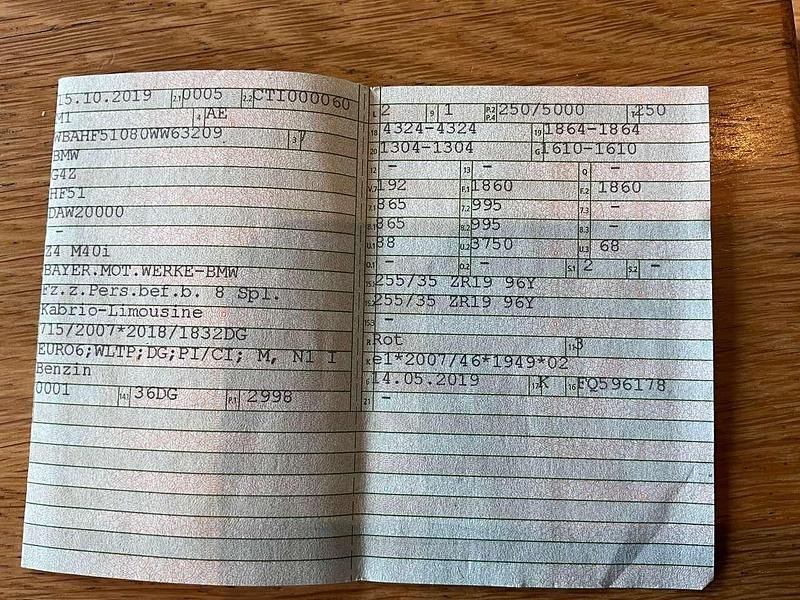 15.10.2019 2.1 0005 2.2 CTI000060
M1 4 AE
WBAHF51080WW63209 3
BMW
G4Z
HF51
DAW20000
-
Z4 M40i
BAYER.MOT.WERKE-BMW
Fz.z.Pers.bef.b. 8 Spl.
Kabrio-Limousine
715/2007*2018/1832DG
EURO6;WLTP;DG;PI/CI; M, N1 I
Benzin
0001 14.1 36DG P.1 2998
L 2 9 1 P.2 P.4 250/5000 T 250
18 4324-4324 19 1864-1864
20 1304-1304 G 1610-1610
12 - 13 - Q -
V.7 192 F.1 1860 F.2 1860
7.1 865 7.2 995 7.3 -
8.1 865 8.2 995 8.3 -
U.1 88 U.2 3750 U.3 68
O.1 - O.2 - S.1 2 S.2 -
15.1 255/35 ZR19 96Y
15.2 255/35 ZR19 96Y
15.3 -
R Rot 11 3
K e1*2007/46*1949*02
6 14.05.2019 17 K 16 FQ596178
21 -